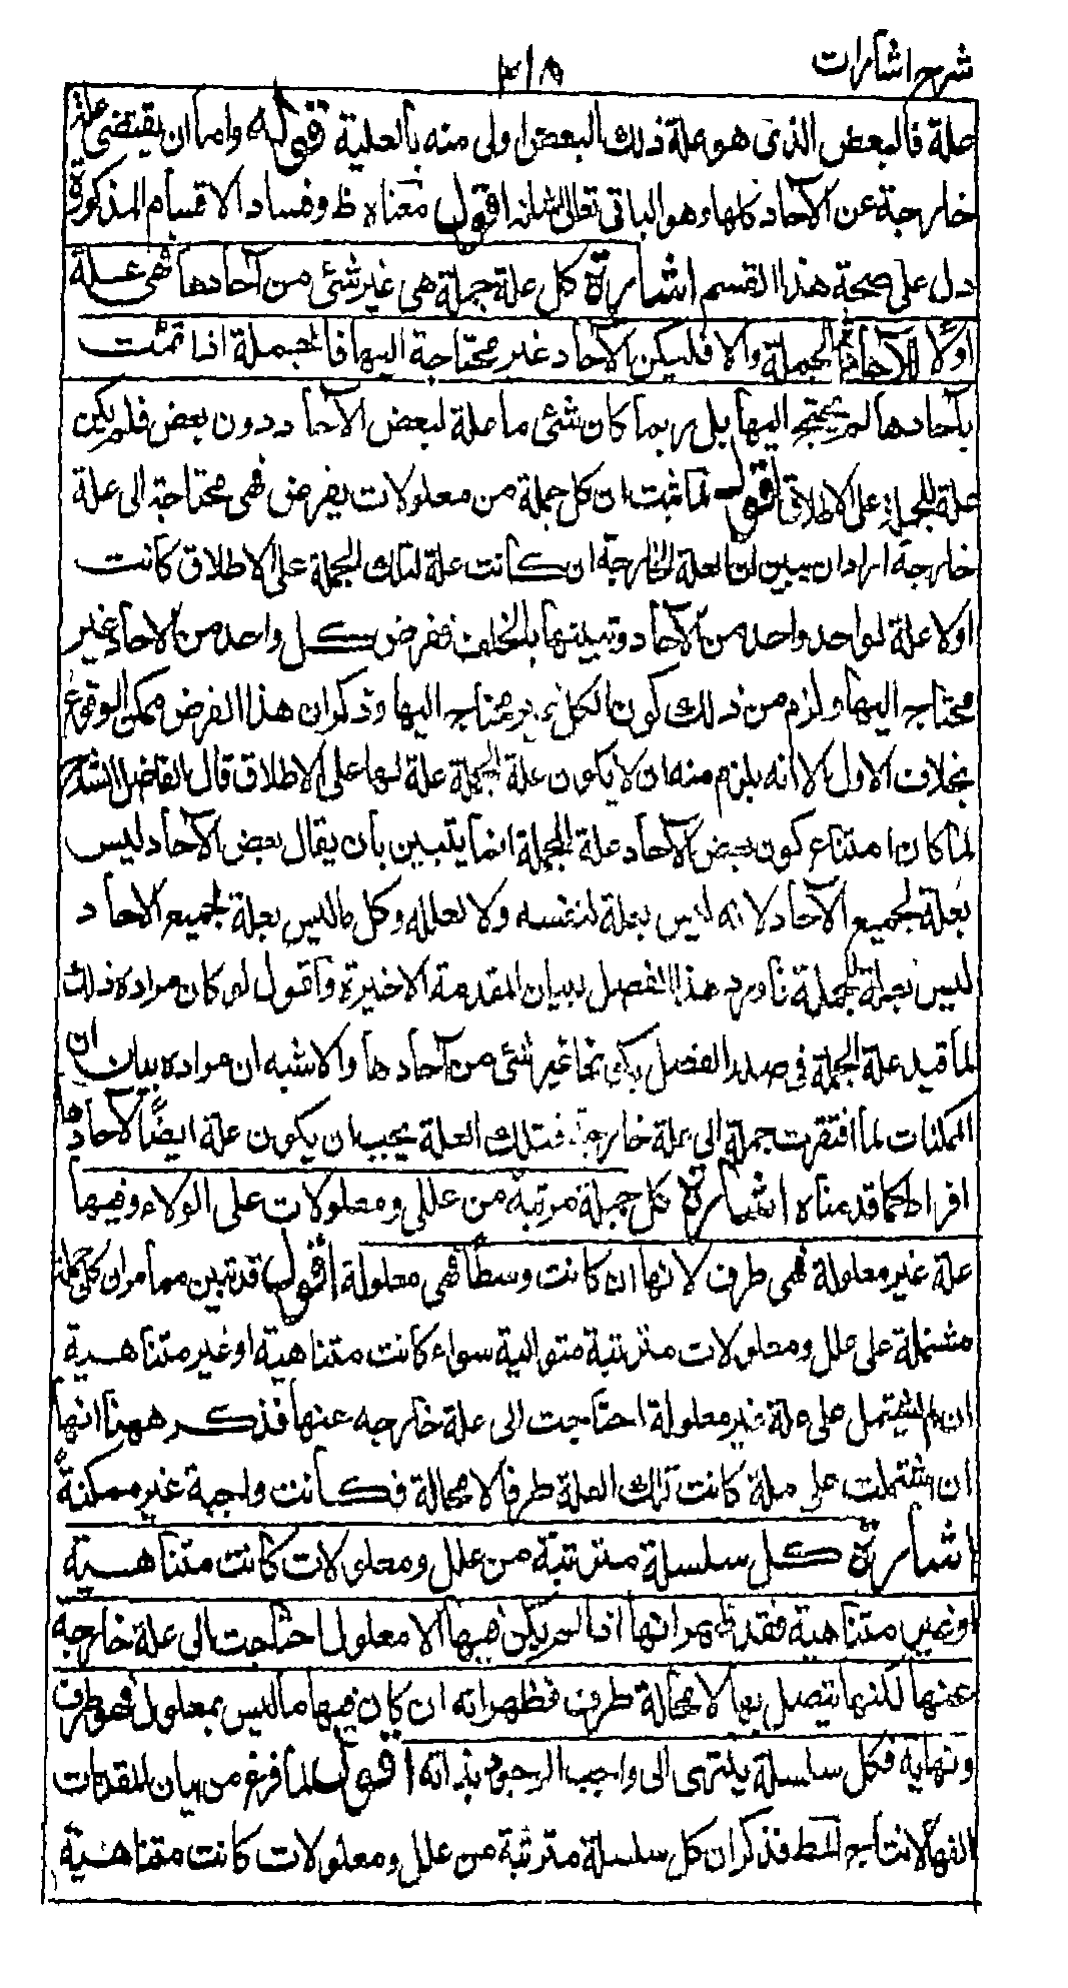 شرح اشارات
٣١٨
علة فالبعض الذى هو علة ذلك البعض اولى منه بالعلية قوله واما ان يقتضى علة
خارجة عن الآحاد كلها وهو الباقى اقول معناه ظ وفساد الاقسام المذكورة
دل على صحة هذا القسم اشارة كل علة جملة هى غير شئ من آحادها فهى علة
اولا للآحاد ثم للجملة والا فليكن الآحاد غير محتاجة اليها فالجملة اذا تمت
بآحادها لم يحتج اليها بل ربما كان شئ ما علة لبعض الآحاد دون بعض فلم يكن
علة للجملة على الاطلاق اقول لما ثبت ان كل جملة من معلولات يفرض فهى محتاجة الى علة
خارجة اراد ان يبين ان العلة الخارجة ان كانت علة لتلك الجملة على الاطلاق كانت
اولا علة لواحد واحد من الآحاد وتبيينها بالخلف ففرض كل واحد من الآحاد غير
محتاج اليها ولزم من ذلك كون الكل غير محتاج اليها وذكر ان هذا الفرض ممكن الوقوع
بخلاف الاول الا انه يلزم منه ان لا يكون علة الجملة علة لها على الاطلاق قال الفاضل الشارح
لما كان امتناع كون بعض الآحاد علة للجملة انما يتبين بان يقال بعض الآحاد ليس
بعلة لجميع الآحاد لانه ليس بعلة لنفسه ولا لعلله وكل ما ليس بعلة لجميع الآحاد
ليس بعلة للجملة فاورد هذا الفصل لبيان المقدمة الاخيرة واقول لو كان مراده ذلك
لما قيد علة الجملة فى صدر الفصل بكونها غير شئ من آحادها والاشبه ان مراده بيان ان
الممكنات لما افتقرت جملة الى علة خارجة فتلك العلة يجب ان يكون علة ايضاً لآحادها
افراداً كما قدمناه اشارة كل جملة مرتبة من علل ومعلولات على الولاء وفيها
علة غير معلولة فهى طرف لانها ان كانت وسطاً فهى معلولة اقول قد تبين مما مر ان كل جملة
مشتملة على علل ومعلولات مترتبة متوالية سواء كانت متناهية او غير متناهية
ان لم يشتمل على علة غير معلولة احتاجت الى علة خارجه عنها فذكر ههنا انها
ان اشتملت على علة كانت تلك العلة طرفا لا محالة فكانت واجبة غير ممكنةً
اشارة كل سلسلة مترتبة من علل ومعلولات كانت متناهية
او غير متناهية فقد ظهر انها اذا لم يكن فيها الا معلول احتاجت الى علة خارجة
عنها لكنها يتصل بها لا محالة طرف فظهر انه ان كان فيها ما ليس بمعلول فهو طرف
ونهاية فكل سلسلة ينتهى الى واجب الوجود بذاته اقول لما فرغ من بيان المقدمات
الفها لانتاج المط فذكر ان كل سلسلة مترتبة من علل ومعلولات كانت متناهية